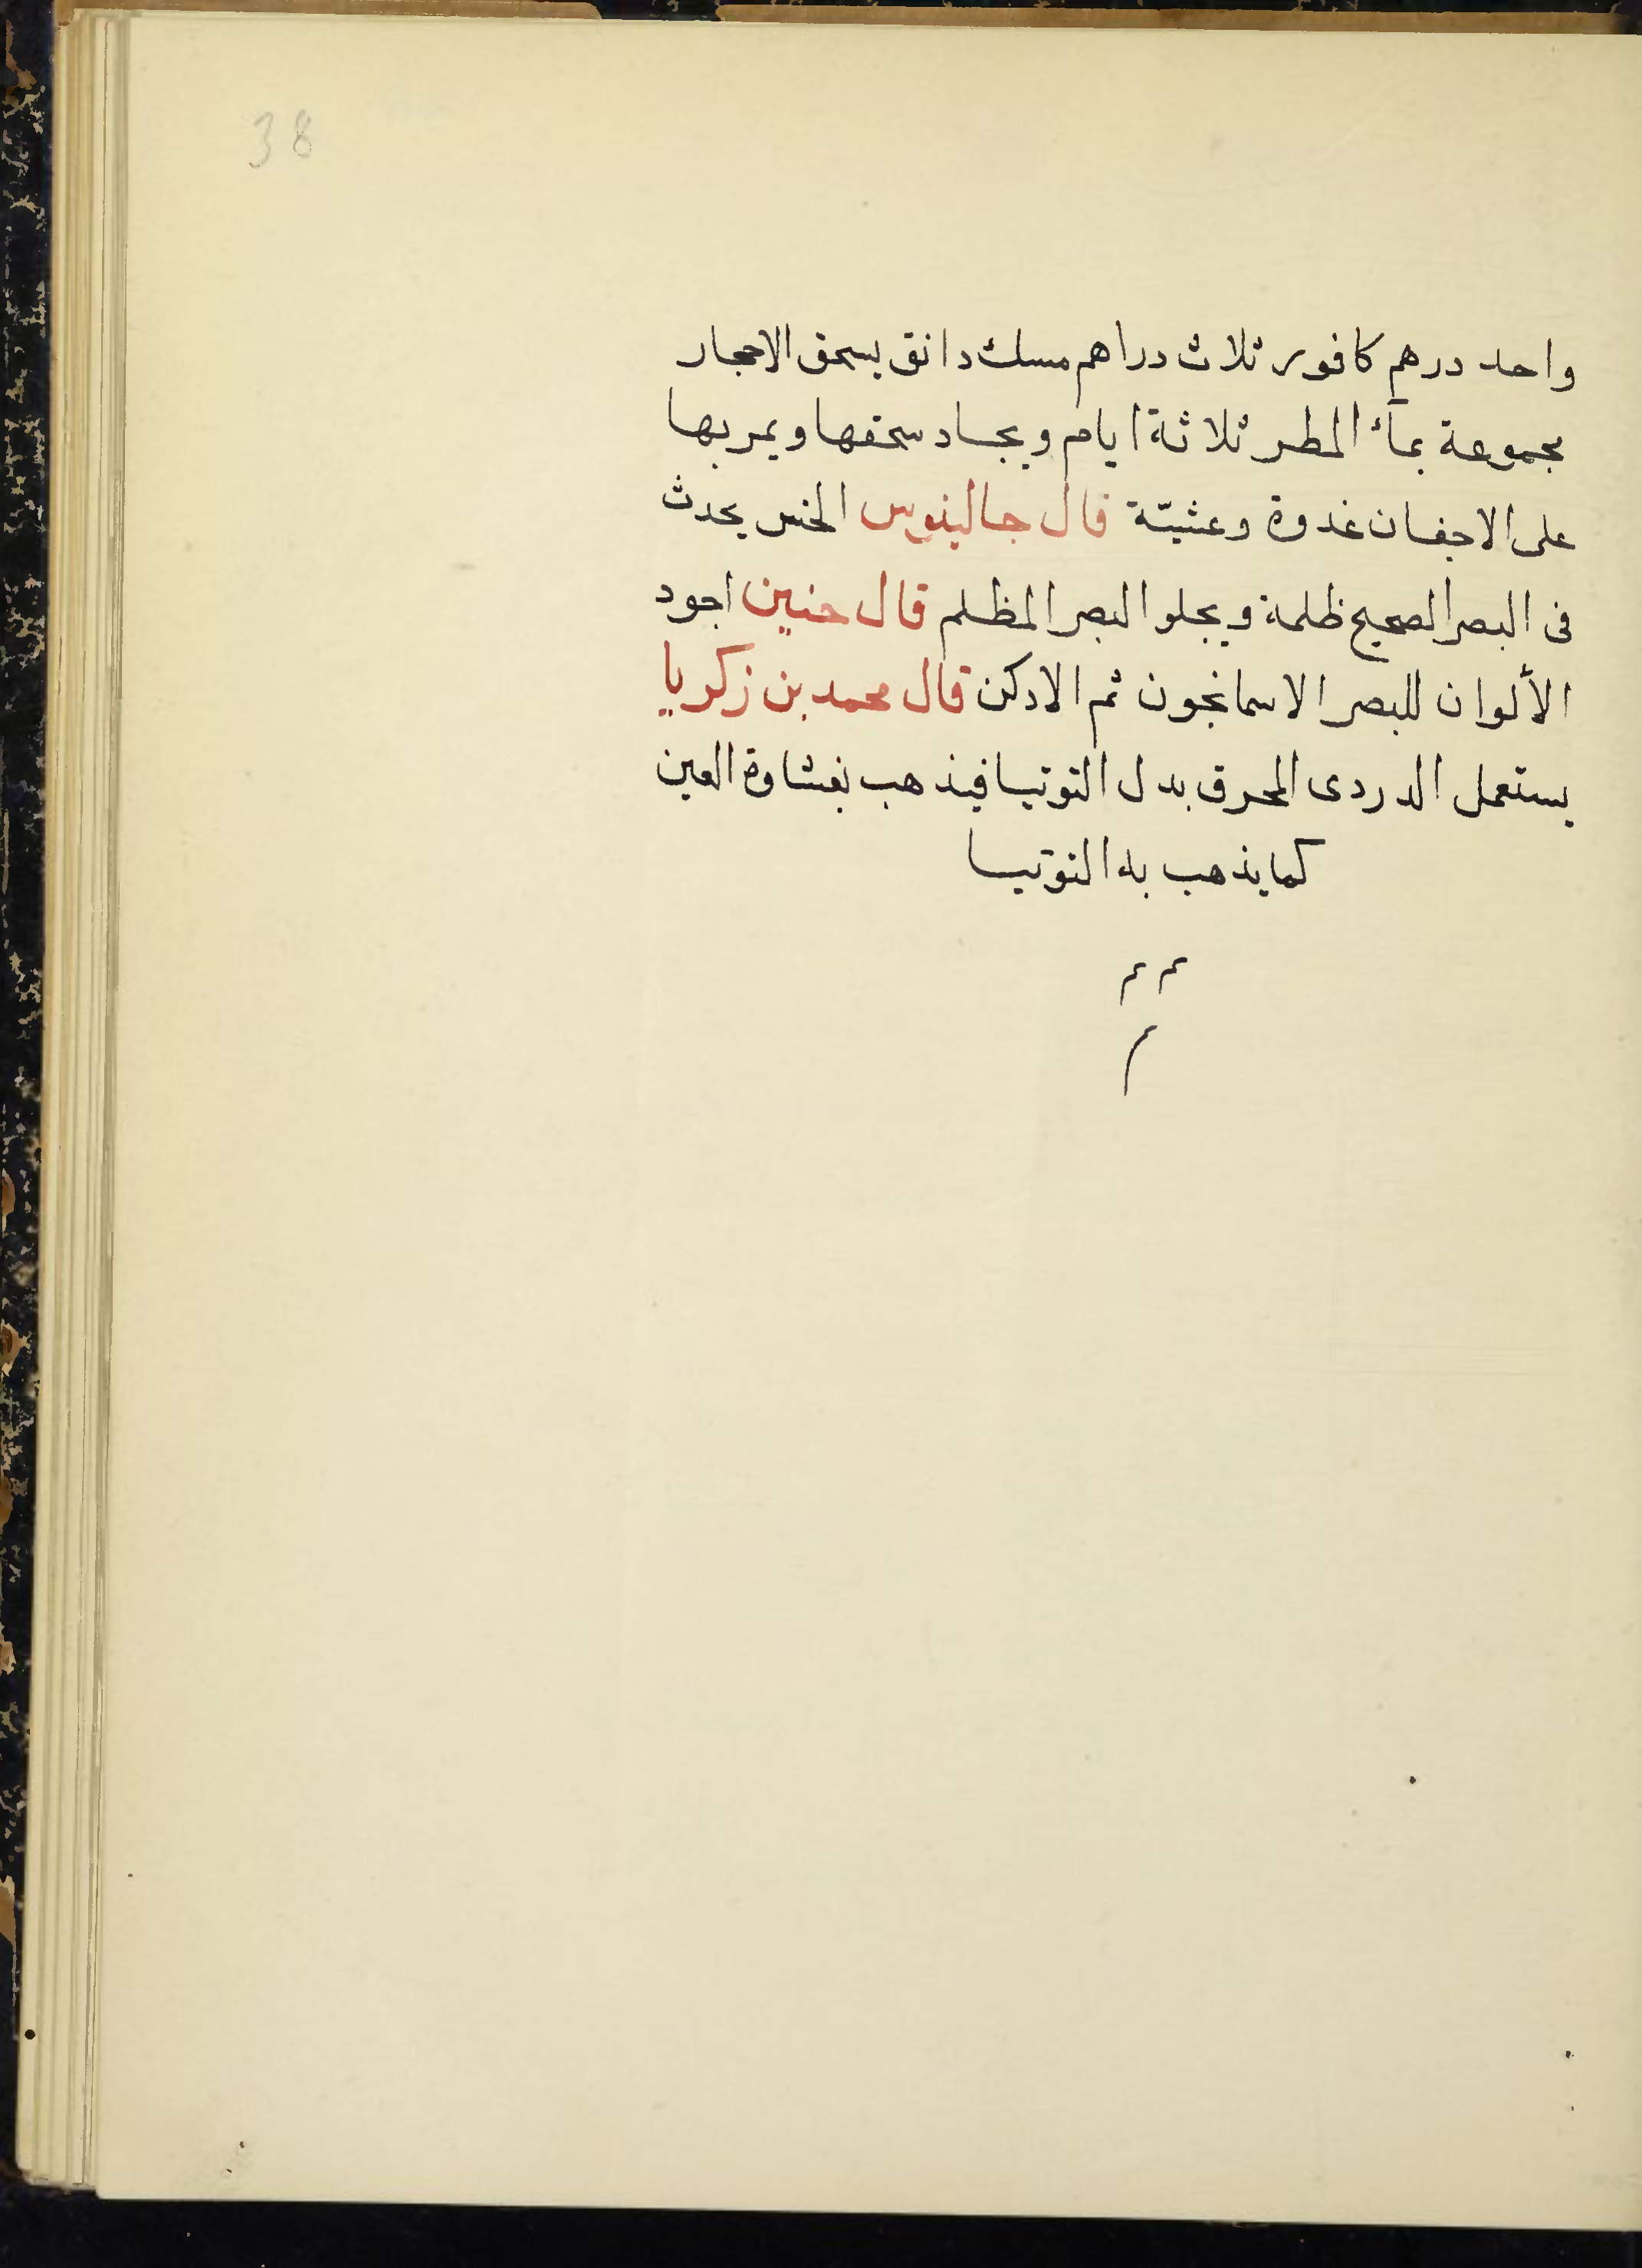 38
واحد درهم كافور ثلاث دراهم مسك دانق يسحق الاحجار
مجموعة بمآء المطر ثلاثة ايام ويجاد سحقها ويمر بها
على الاجفان غدوة وعشيّة قال جالينوس الخس يحدث
فى البصر الصحيح ظلمة ويجلو البصر المظلم قال حنين اجود
الألوان للبصر الاسمانجون ثم الادكن قال محمد بن زكريا
يستعمل الدردى المحرق بدل التوتيا فيذهب بغشاوة العين
كما يذهب به التوتيا
م م
م